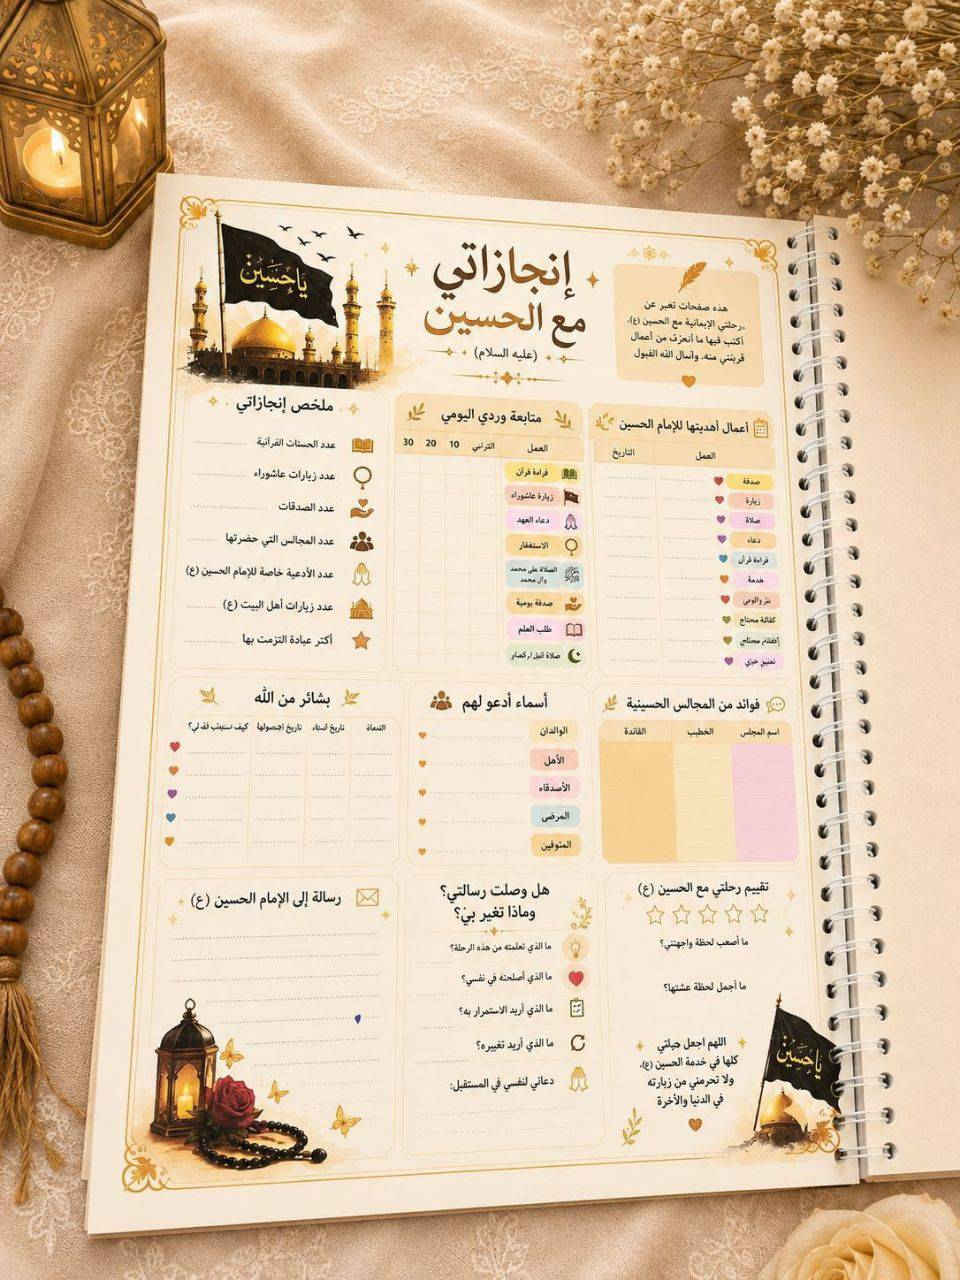 يا حسين
إنجازاتي
مع الحسين
(عليه السلام)
هذه صفحات تعبر عن
رحلتي الإيمانية مع الحسين (ع)،
أكتب فيها ما أنجزت من أعمال
قربتني منه، وأسأل الله القبول
أعمال أهديتها للإمام الحسين
العمل
التاريخ
صدقة
زيارة
صلاة
دعاء
قراءة قرآن
خدمة
كفالة محتاج
متابعة وردي اليومي
العمل
10
20
30
قراءة قرآن
زيارة عاشوراء
دعاء العهد
الاستغفار
الصلاة على محمد
وآل محمد
صدقة يومية
طلب العلم
ملخص إنجازاتي
عدد زيارات عاشوراء
عدد الصدقات
عدد المجالس التي حضرتها
عدد الأدعية خاصة للإمام الحسين (ع)
عدد زيارات أهل البيت (ع)
أكثر عبادة التزمت بها
فوائد من المجالس الحسينية
اسم المجلس
الخطيب
الفائدة
أسماء أدعو لهم
الوالدان
الأهل
الأصدقاء
المرضى
المتوفين
بشائر من الله
تقييم رحلتي مع الحسين (ع)
ما أصعب لحظة واجهتني؟
ما أجمل لحظة عشتها؟
اللهم اجعل حياتي
كلها في خدمة الحسين (ع)،
ولا تحرمني من زيارته
في الدنيا والآخرة
يا حسين
هل وصلت رسالتي؟
وماذا تغير بي؟
ما الذي تعلمته من هذه الرحلة؟
ما الذي أصلحته في نفسي؟
ما الذي أريد الاستمرار به؟
ما الذي أريد تغييره؟
دعائي لنفسي في المستقبل:
رسالة إلى الإمام الحسين (ع)